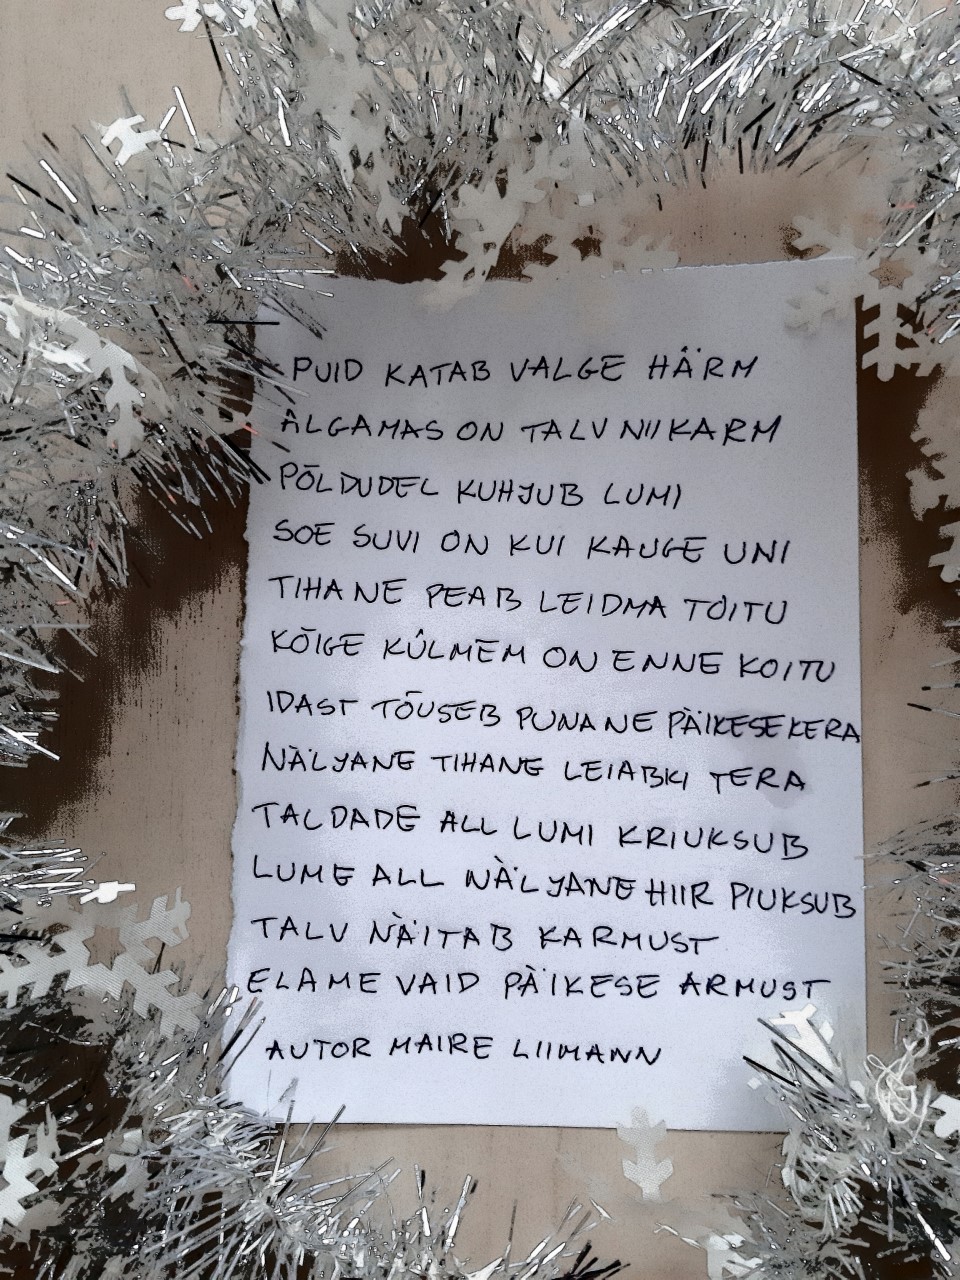 PUID KATAB VALGE HÄRM
ALGAMAS ON TALV NII KARM
PÕLDUDEL KUHJUB LUMI
SOE SUVI ON KUI KAUGE UNI
TIHANE PEAB LEIDMA TOITU
KÕIGE KÜLMEM ON ENNE KOITU
IDAST TÕUSEB PUNANE PÄIKESEKERA
NÄLJANE TIHANE LEIABKI TERA
TALDADE ALL LUMI KRIUKSUB
LUME ALL NÄLJANE HIIR PIUKSUB
TALV NÄITAB KARMUST
ELAME VAID PÄIKESE ARMUST
AUTOR MAIRE LIIMANN